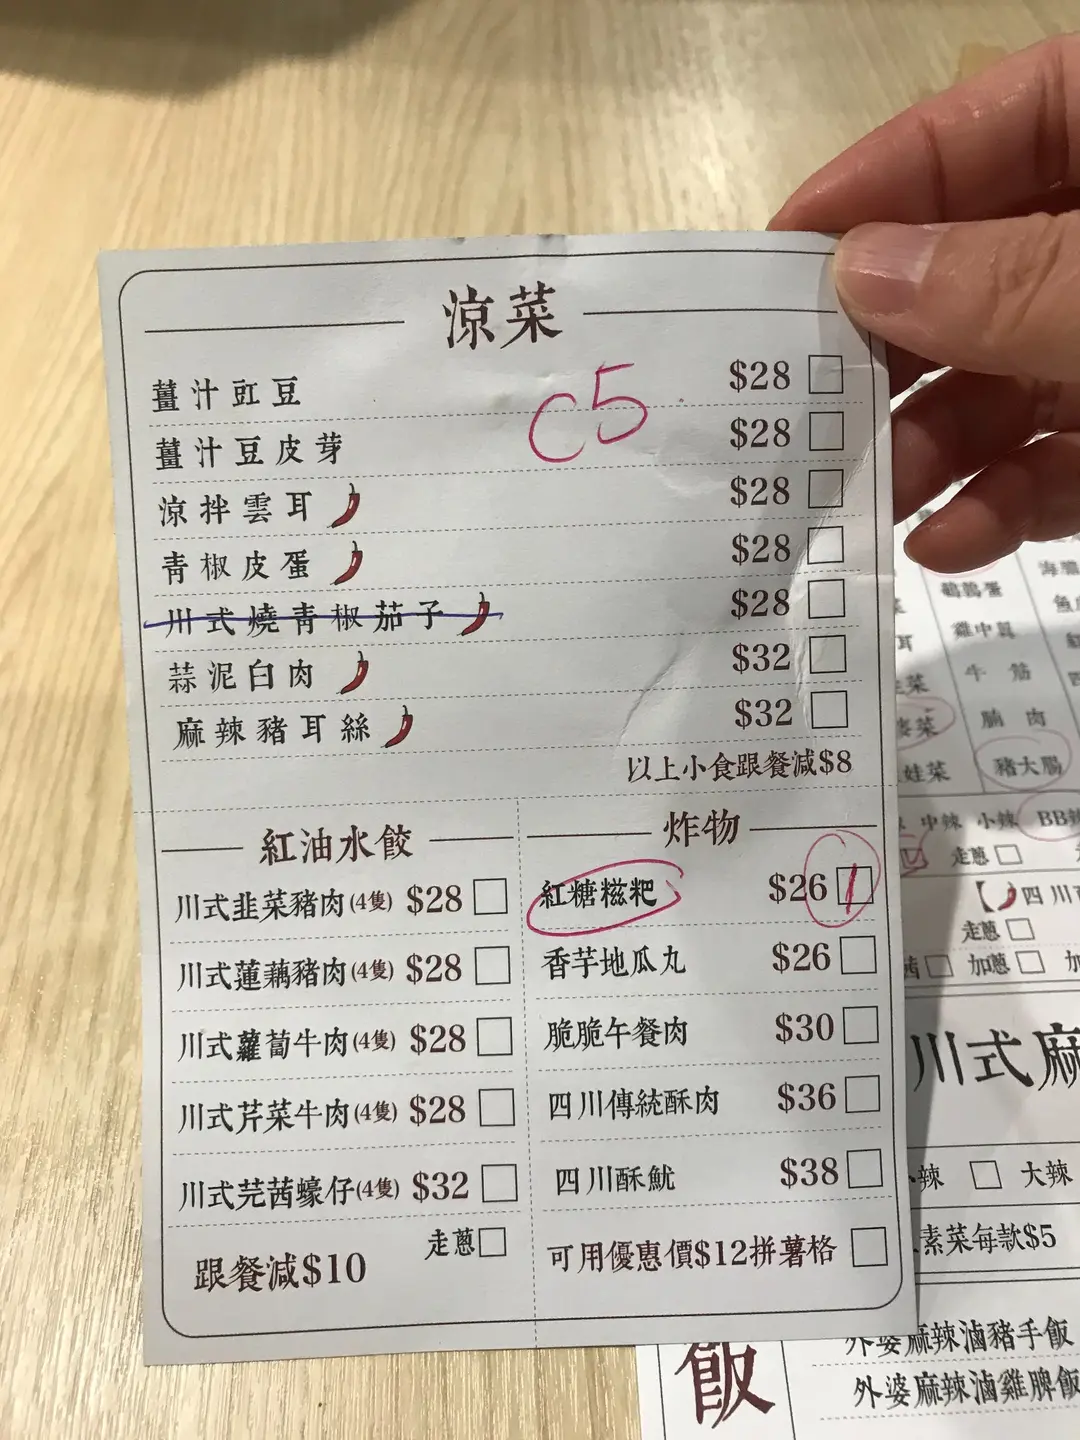 涼菜
C5
薑汁豇豆 $28
薑汁豆皮芽 $28
涼拌雲耳 $28
青椒皮蛋 $28
川式燒青椒茄子 $28
蒜泥白肉 $32
麻辣豬耳絲 $32
以上小食跟餐減$8
紅油水餃
川式韭菜豬肉(4隻) $28
川式蓮藕豬肉(4隻) $28
川式蘿蔔牛肉(4隻) $28
川式芹菜牛肉(4隻) $28
川式芫茜蠔仔(4隻) $32
走蔥
跟餐減$10
炸物
紅糖糍粑 $26 1
香芋地瓜丸 $26
脆脆午餐肉 $30
四川傳統酥肉 $36
四川酥魷 $38
可用優惠價$12拼薯格
鵪鶉蛋
海
魚
耳
菜
牛筋
腩肉
婆菜
娃菜
豬大腸
中辣 小辣 BB
走蔥
【 四川
走蔥
茜 加蔥 加
川式麻
小辣 大辣
素菜每款$5
飯
外婆麻辣滷豬手飯
外婆麻辣滷雞脾飯